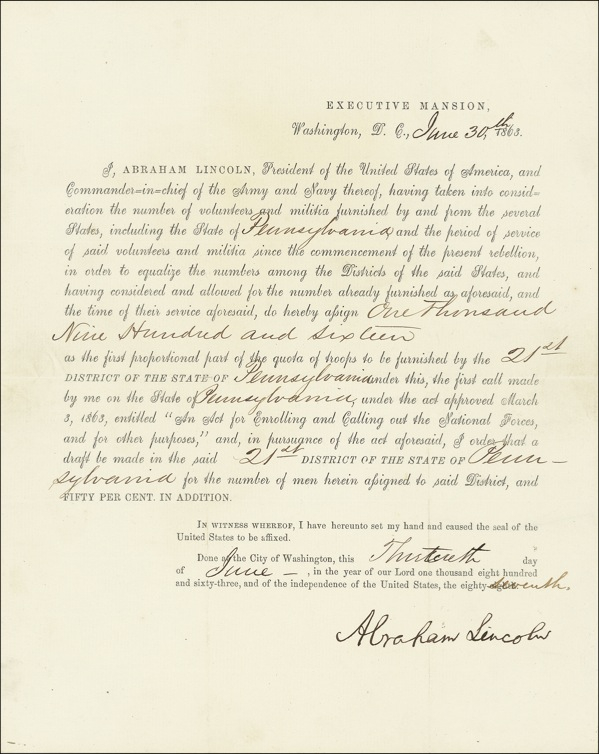 EXECUTIVE MANSION,
Washington, D. C., June 30,th 1863.
I, ABRAHAM LINCOLN, President of the United States of America, and
Commander=in=chief of the Army and Navy thereof, having taken into consid=
eration the number of volunteers and militia furnished by and from the several
States, including the State of Pennsylvania and the period of service
of said volunteers and militia since the commencement of the present rebellion,
in order to equalize the numbers among the Districts of the said States, and
having considered and allowed for the number already furnished as aforesaid, and
the time of their service aforesaid, do hereby aſsign One Thousand
Nine Hundred and Sixteen
as the first proportional part of the quota of troops to be furnished by the 21st
DISTRICT OF THE STATE OF Pennsylvania under this, the first call made
by me on the State of Pennsylvania, under the act approved March
3, 1863, entitled "An Act for Enrolling and Calling out the National Forces,
and for other purposes," and, in pursuance of the act aforesaid, I order that a
draft be made in the said 21st DISTRICT OF THE STATE OF Penn-
sylvania for the number of men herein aſsigned to said District, and
FIFTY PER CENT. IN ADDITION.
IN WITNESS WHEREOF, I have hereunto set my hand and caused the seal of the
United States to be affixed.
Done at the City of Washington, this Thirtieth day
of June –, in the year of our Lord one thousand eight hundred
and sixty-three, and of the independence of the United States, the eighty-seventh.
Abraham Lincoln